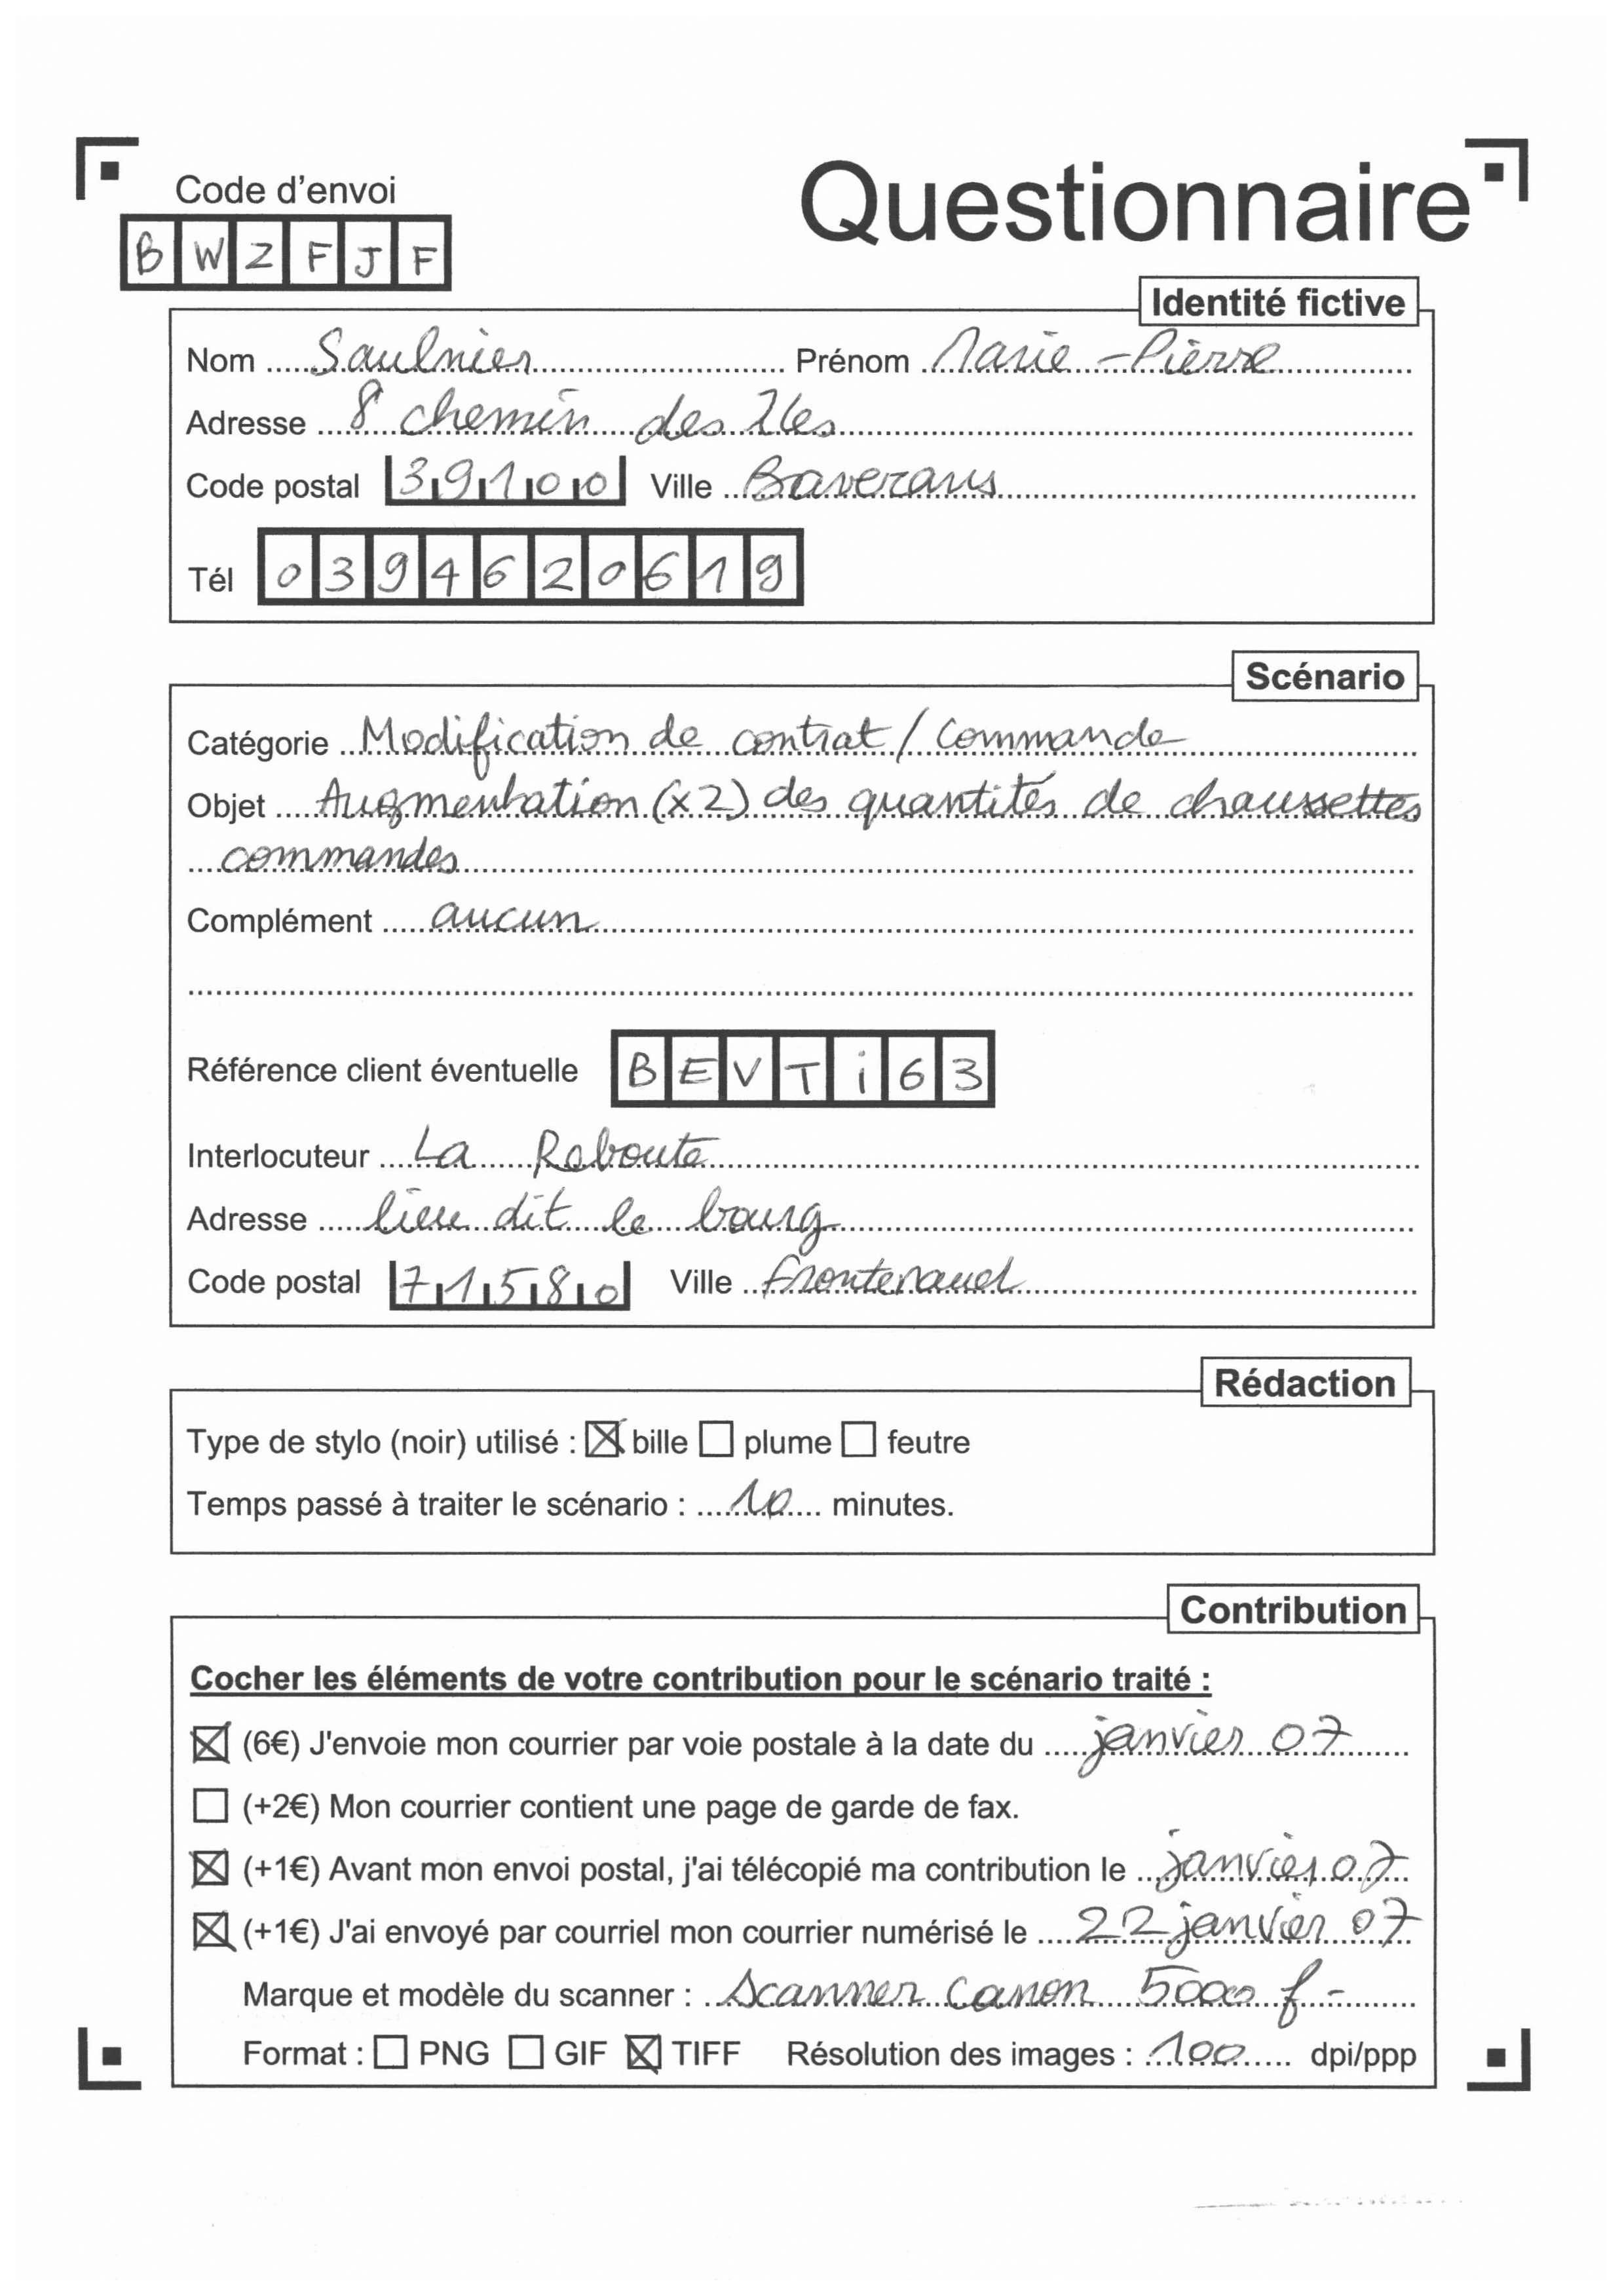 Code d'envoi
Questionnaire
B W Z F J F
Identité fictive
Nom Saulnier Prénom Marie-Pierre
Adresse 8 chemin des Iles
Code postal 39100 Ville Baverans
Tél 0394620619
Scénario
Catégorie Modification de contrat / Commande
Objet Augmentation (x2) des quantités de chaussettes
commandes
Complément aucun
Référence client éventuelle BEVTi63
Interlocuteur La Reboute
Adresse lieu dit le bourg
Code postal 71580 Ville Frontenaud
Rédaction
Type de stylo (noir) utilisé : ☒ bille ☐ plume ☐ feutre
Temps passé à traiter le scénario : 10 minutes.
Contribution
Cocher les éléments de votre contribution pour le scénario traité :
☒ (6€) J'envoie mon courrier par voie postale à la date du janvier 07
☐ (+2€) Mon courrier contient une page de garde de fax.
☒ (+1€) Avant mon envoi postal, j'ai télécopié ma contribution le janvier 07
☒ (+1€) J'ai envoyé par courriel mon courrier numérisé le 22 janvier 07
Marque et modèle du scanner : Scanner Canon 5000 f -
Format : ☐ PNG ☐ GIF ☒ TIFF Résolution des images : 100 dpi/ppp